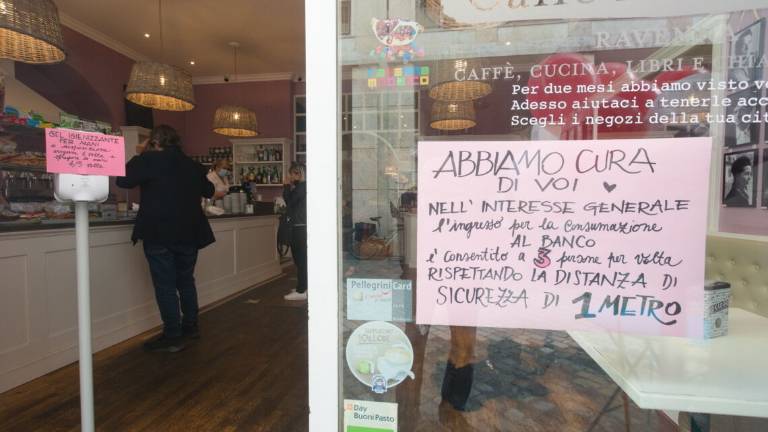 RAVENNA
CAFFÈ, CUCINA, LIBRI E
Per due mesi abbiamo visto
Adesso aiutaci a tenerle
Scegli i negozi della tua
GEL IGIENIZZANTE
PER MANI
ABBIAMO CURA
DI VOI
NELL'INTERESSE GENERALE
l'ingresso per la consumazione
AL BANCO
è consentito a 3 persone per volta
RISPETTANDO LA DISTANZA DI
SICUREZZA DI 1 METRO
Pellegrini Card
Day
BuoniPasto